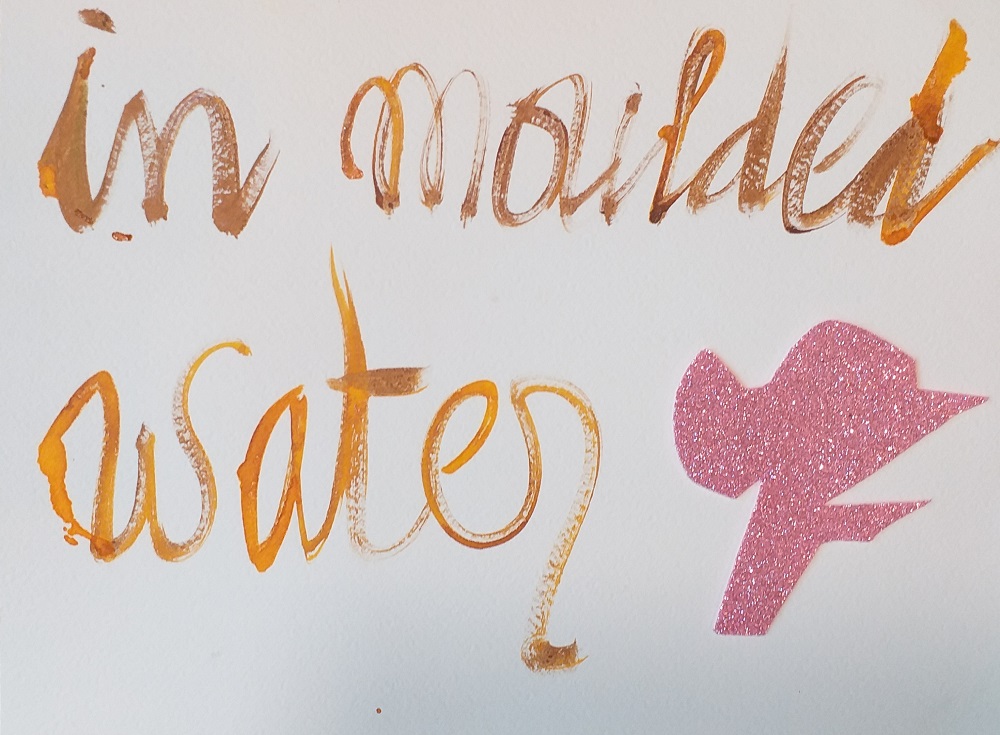 in moulded
water